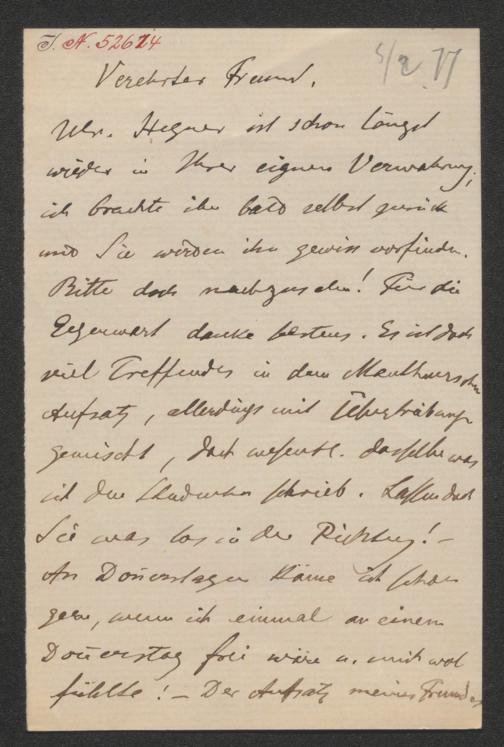 I. N. 52674
5/2 77
Verehrter Freund,
Mr. Hegner ist schon längst
wieder in Ihrer eignen Verwahrung;
ich brachte ihn bald selbst zurück
und Sie werden ihn gewiss vorfinden.
Bitte doch nachzusehen! Für die
Gegenwart danke bestens. Es ist doch
viel Treffendes in dem Mauthnerschen
Aufsatz, allerdings mit Übertreibung
gemischt, doch wesentl. dasselbe was
ich den schrieb. Lassen doch
Sie was los in der Richtung! –
An Donnerstagen käme ich schon
gern, wenn ich einmal an einem
Donnerstag frei wäre u. mich wol
fühlte! – Der Aufsatz meines Freundes